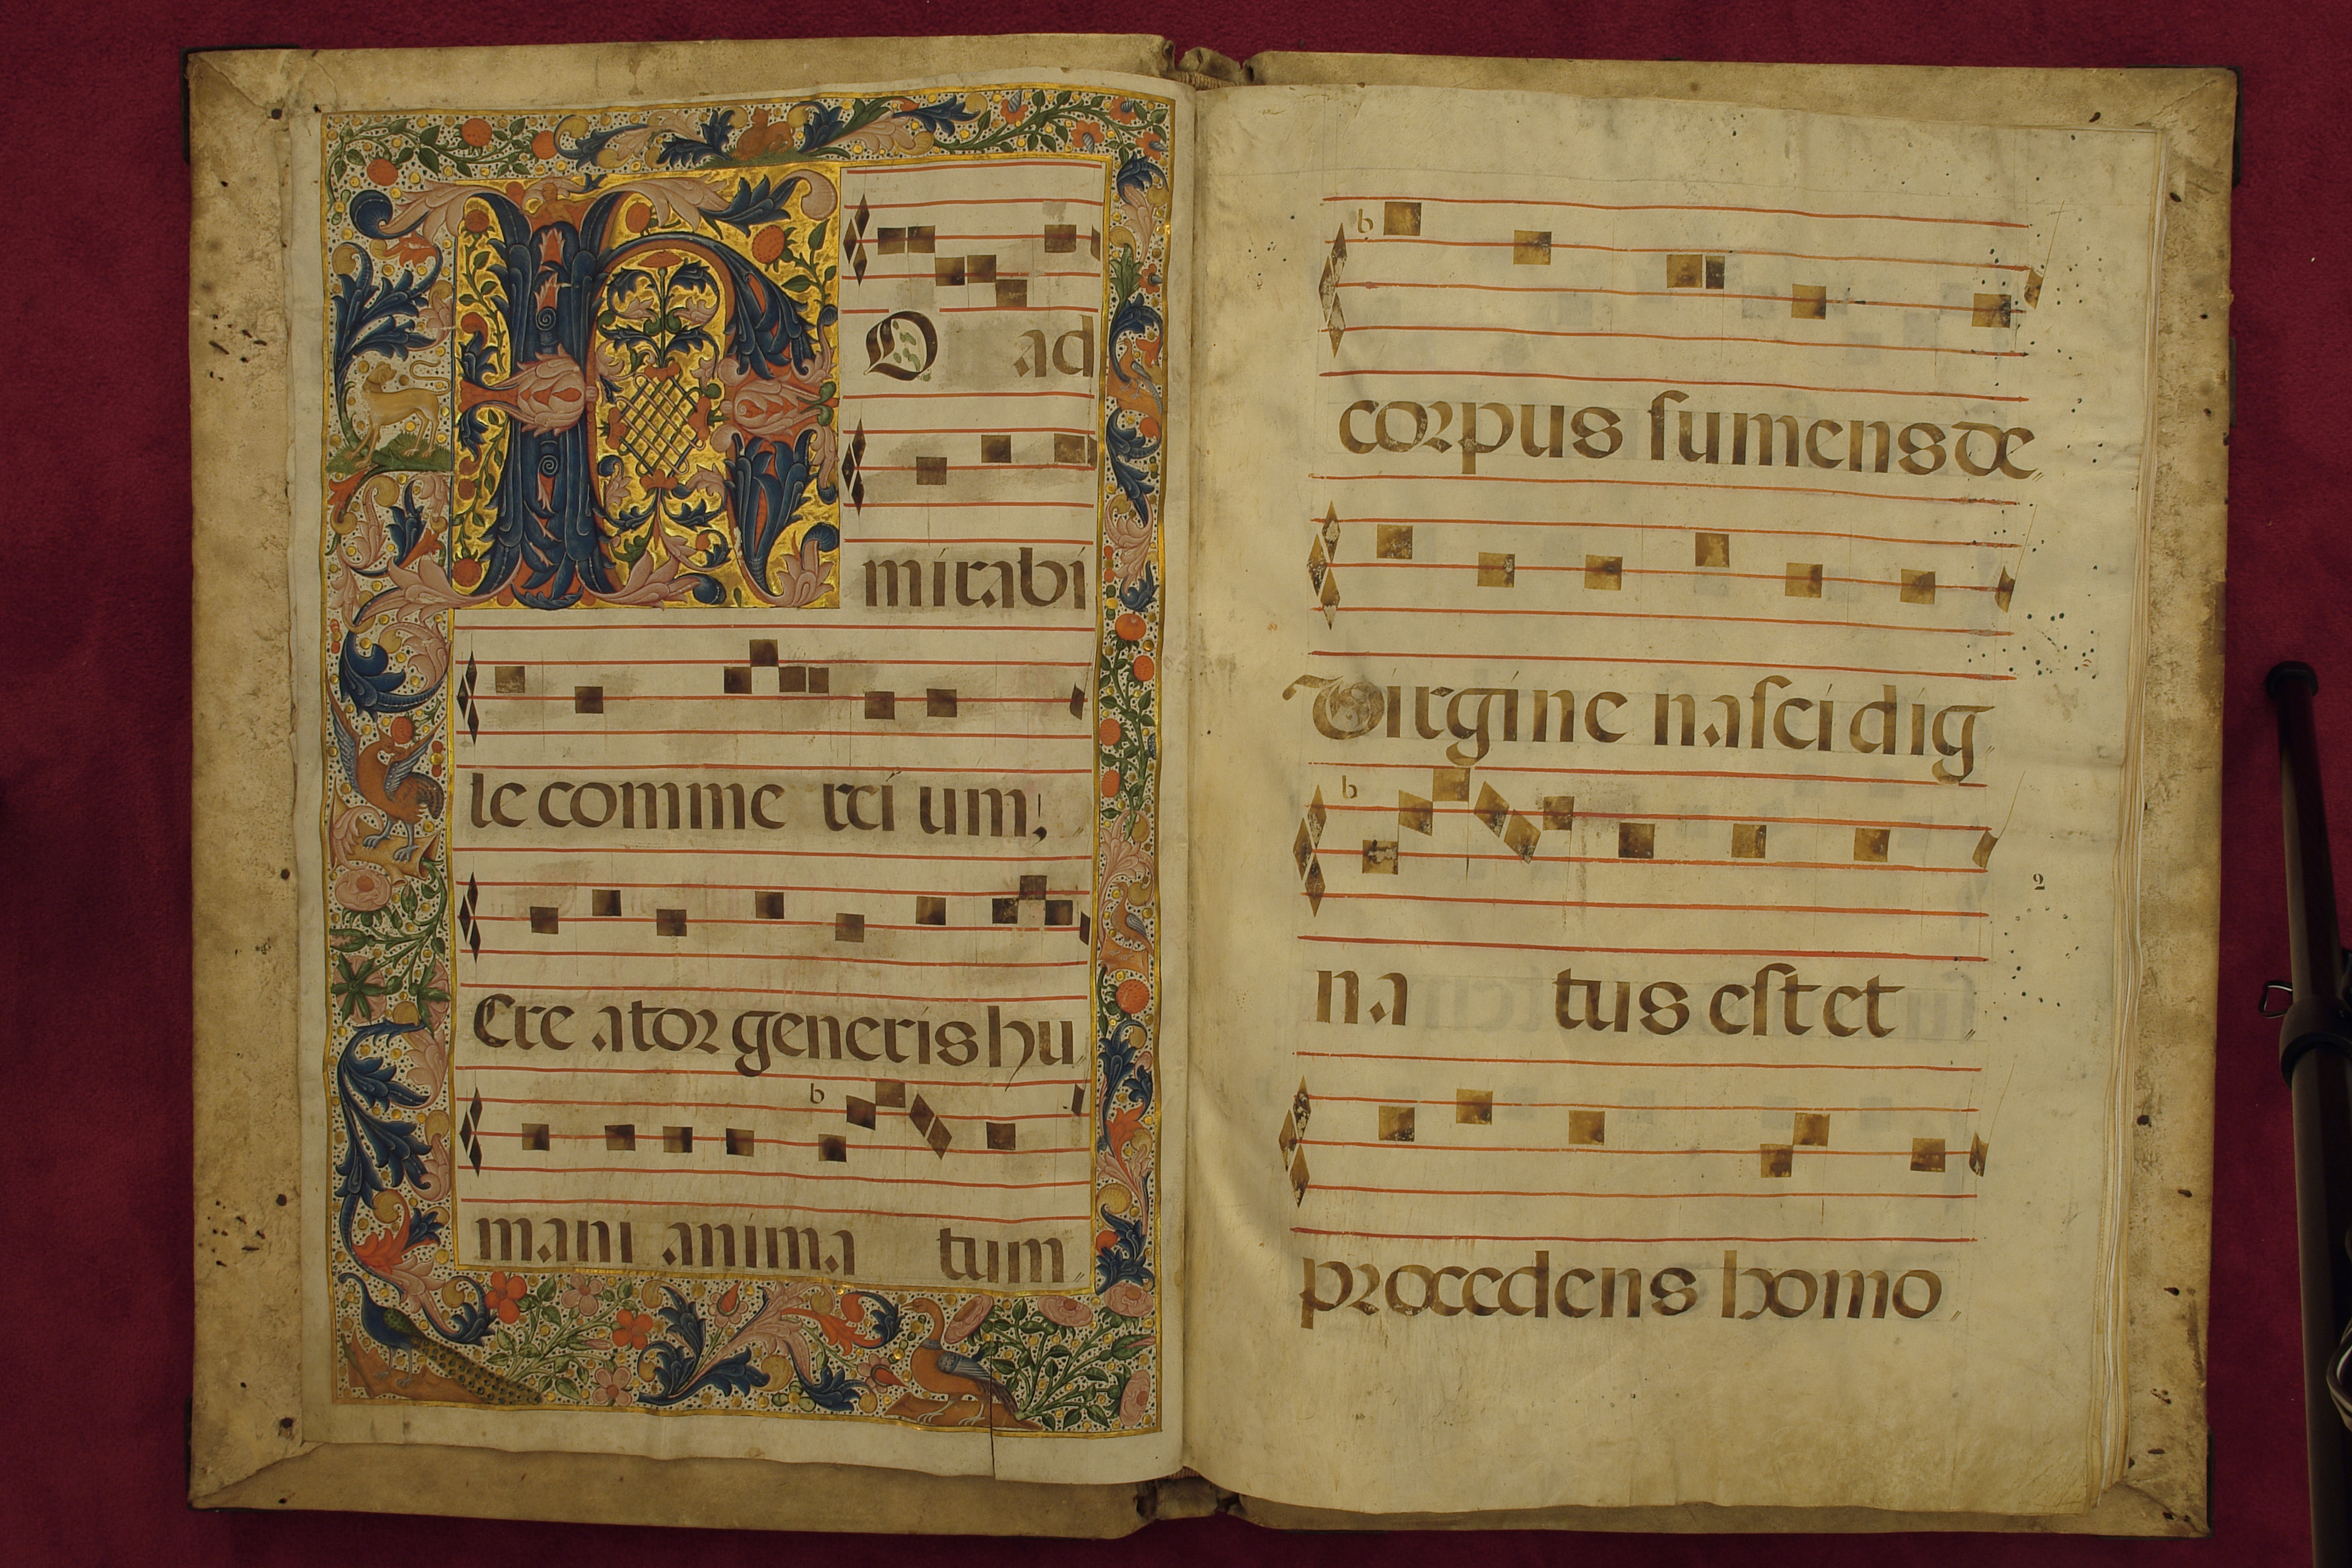 HO ad
mirabi
le comme rci um:
Cre ator generis hu
mani anima tum
corpus sumens de
Virgine nasci dig
2
na tus est et
procedens homo